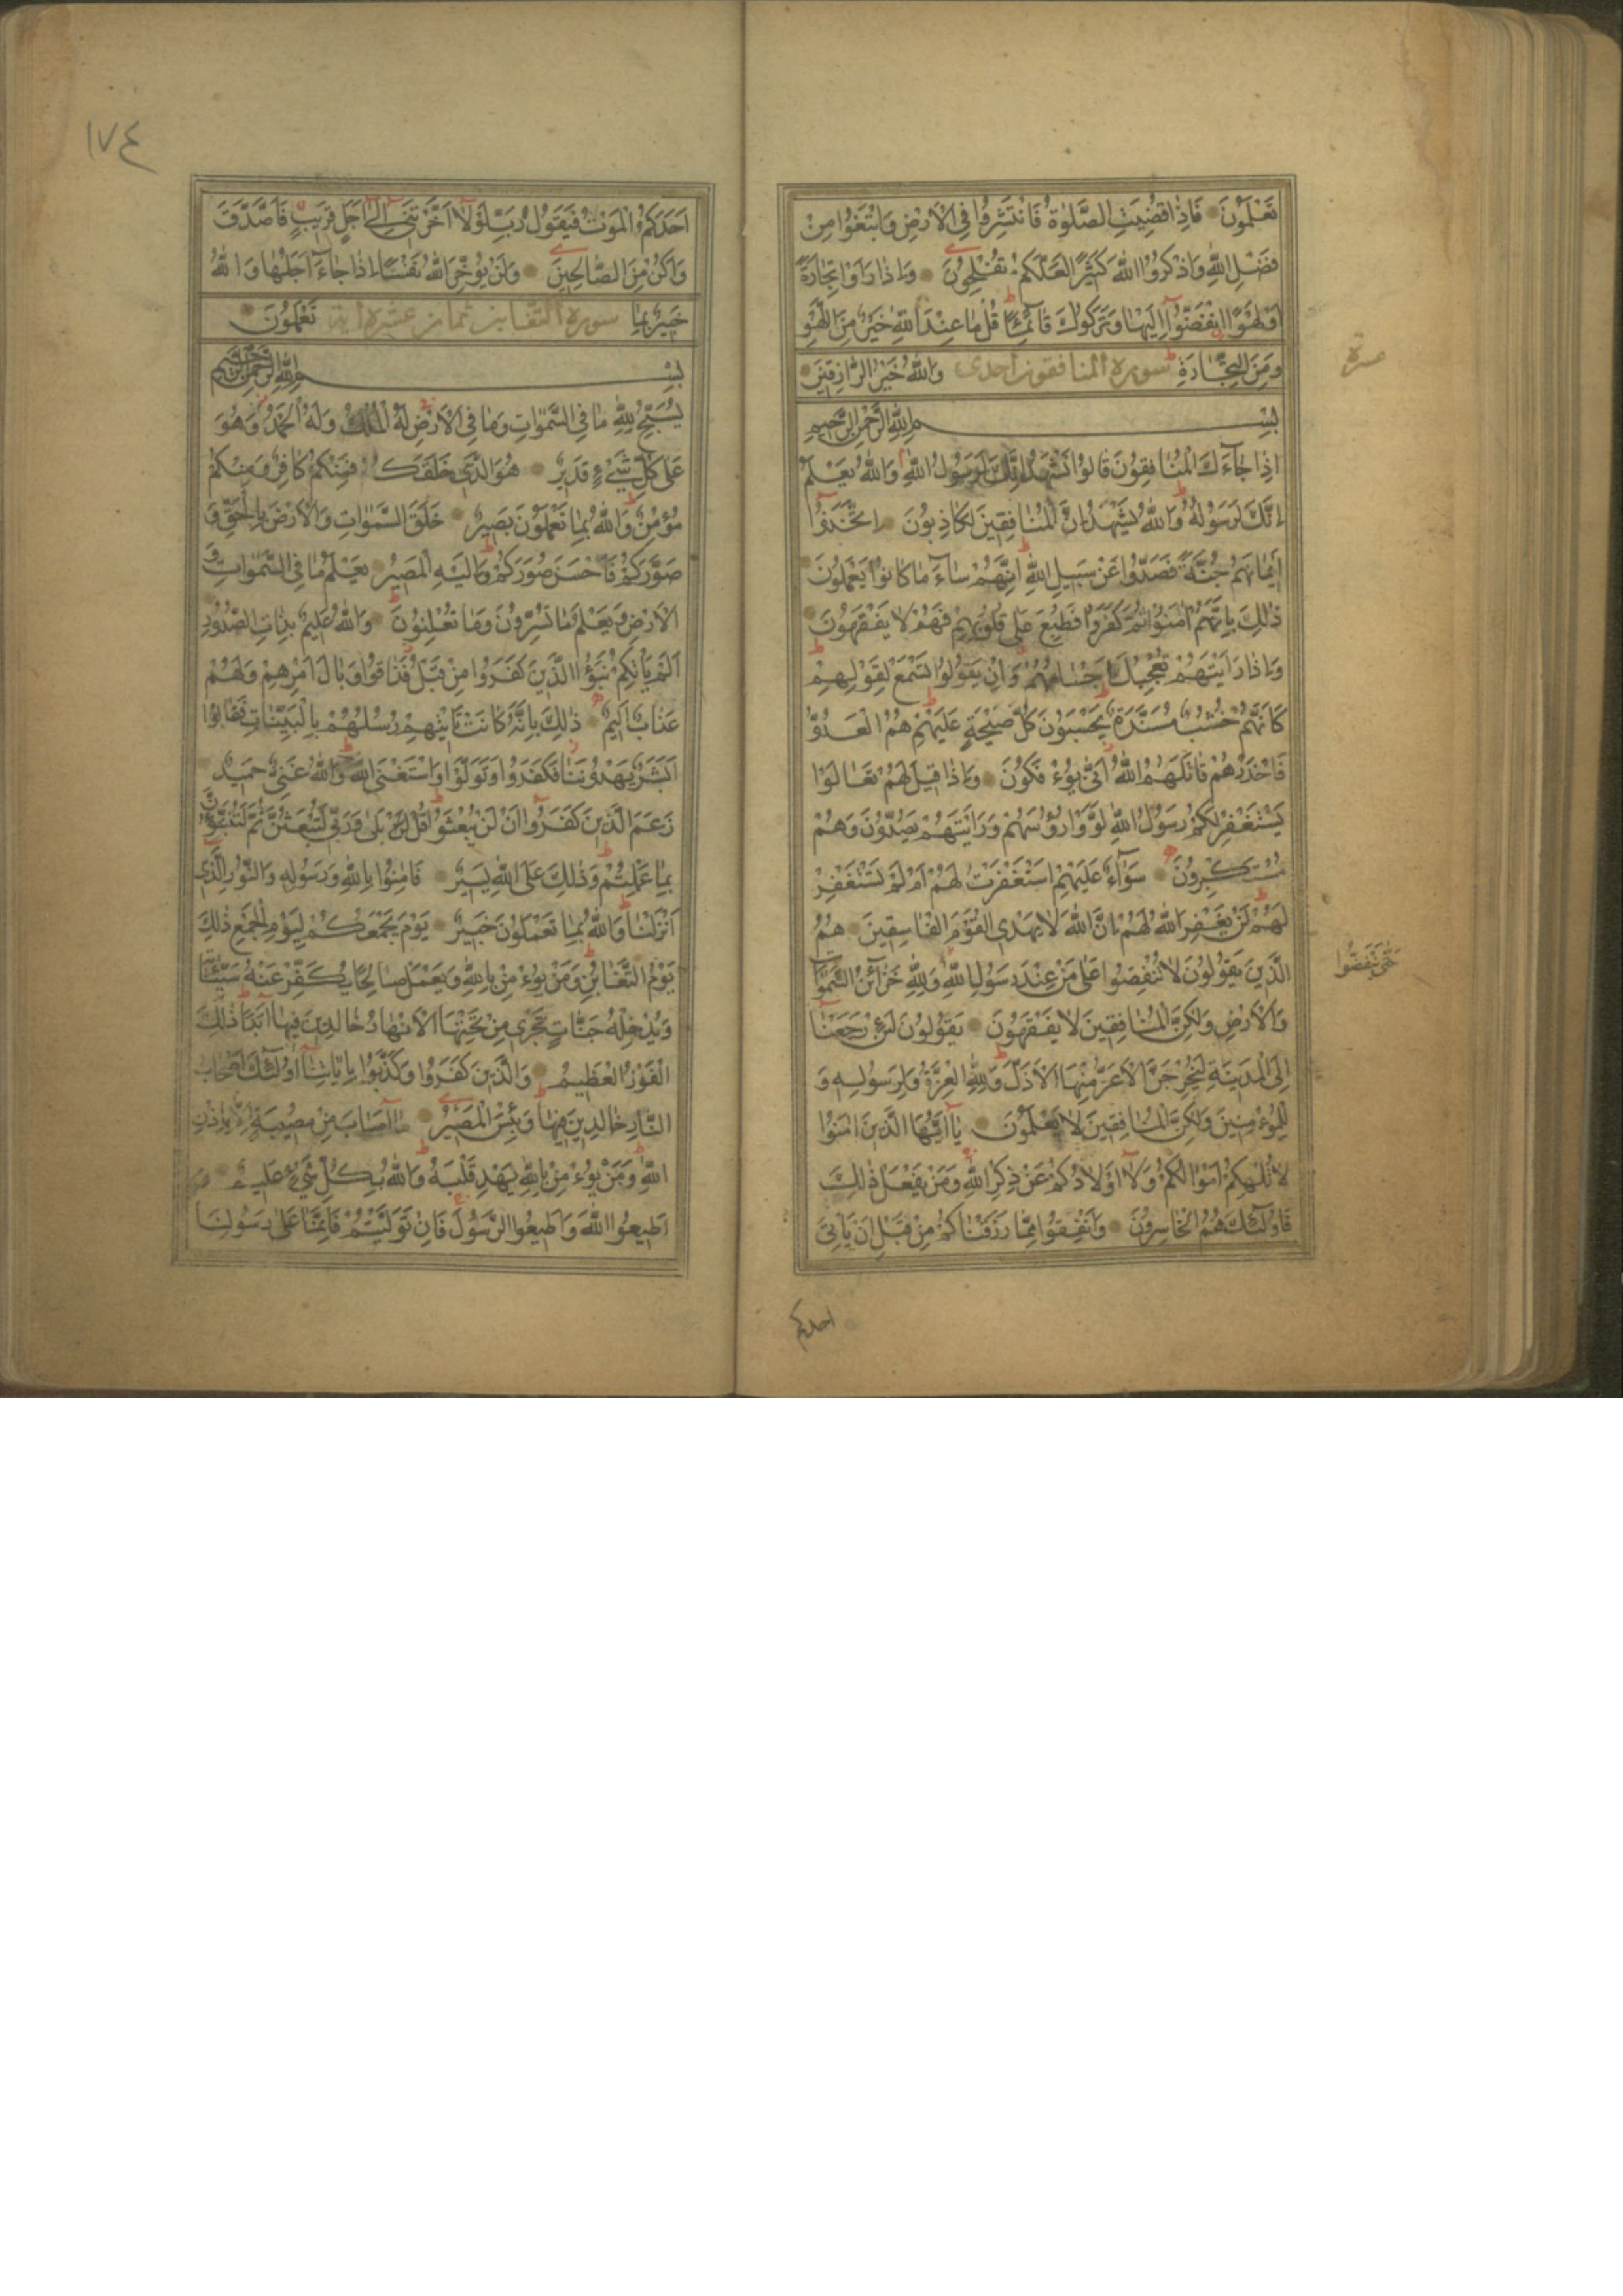 تَعْلَمُونَ فَاِذَا قُضِيَتِ الصَّلٰوةُ فَانْتَشِرُوا فِي الْاَرْضِ وَابْتَغُوا مِنْ
فَضْلِ اللّٰهِ وَاذْكُرُوا اللّٰهَ كَثِيرًا لَعَلَّكُمْ تُفْلِحُونَ وَاِذَا رَاَوْا تِجَارَةً
اَوْ لَهْوًا انْفَضُّوا اِلَيْهَا وَتَرَكُوكَ قَائِمًا قُلْ مَا عِنْدَ اللّٰهِ خَيْرٌ مِنَ اللَّهْوِ
وَمِنَ التِّجَارَةِ سورة المنافقون احدى وَاللّٰهُ خَيْرُ الرَّازِقِينَ
بِسْمِ اللّٰهِ الرَّحْمٰنِ الرَّحِيمِ
اِذَا جَاءَكَ الْمُنَافِقُونَ قَالُوا نَشْهَدُ اِنَّكَ لَرَسُولُ اللّٰهِ وَاللّٰهُ يَعْلَمُ
اِنَّكَ لَرَسُولُهُ وَاللّٰهُ يَشْهَدُ اِنَّ الْمُنَافِقِينَ لَكَاذِبُونَ اِتَّخَذُوا
اَيْمَانَهُمْ جُنَّةً فَصَدُّوا عَنْ سَبِيلِ اللّٰهِ اِنَّهُمْ سَاءَ مَا كَانُوا يَعْمَلُونَ
ذٰلِكَ بِاَنَّهُمْ اٰمَنُوا ثُمَّ كَفَرُوا فَطُبِعَ عَلٰى قُلُوبِهِمْ فَهُمْ لَا يَفْقَهُونَ
وَاِذَا رَاَيْتَهُمْ تُعْجِبُكَ اَجْسَامُهُمْ وَاِنْ يَقُولُوا تَسْمَعْ لِقَوْلِهِمْ
كَاَنَّهُمْ خُشُبٌ مُسَنَّدَةٌ يَحْسَبُونَ كُلَّ صَيْحَةٍ عَلَيْهِمْ هُمُ الْعَدُوُّ
فَاحْذَرْهُمْ قَاتَلَهُمُ اللّٰهُ اَنّٰى يُؤْفَكُونَ وَاِذَا قِيلَ لَهُمْ تَعَالَوْا
يَسْتَغْفِرْ لَكُمْ رَسُولُ اللّٰهِ لَوَّوْا رُؤُسَهُمْ وَرَاَيْتَهُمْ يَصُدُّونَ وَهُمْ
مُسْتَكْبِرُونَ سَوَاءٌ عَلَيْهِمْ اَسْتَغْفَرْتَ لَهُمْ اَمْ لَمْ تَسْتَغْفِرْ
لَهُمْ لَنْ يَغْفِرَ اللّٰهُ لَهُمْ اِنَّ اللّٰهَ لَا يَهْدِي الْقَوْمَ الْفَاسِقِينَ هُمُ
الَّذِينَ يَقُولُونَ لَا تُنْفِقُوا عَلٰى مَنْ عِنْدَ رَسُولِ اللّٰهِ وَلِلّٰهِ خَزَائِنُ السَّمٰوَاتِ
حَتّٰى يَنْفَضُّوا
وَالْاَرْضِ وَلٰكِنَّ الْمُنَافِقِينَ لَا يَفْقَهُونَ يَقُولُونَ لَئِنْ رَجَعْنَا
اِلَى الْمَدِينَةِ لَيُخْرِجَنَّ الْاَعَزُّ مِنْهَا الْاَذَلَّ وَلِلّٰهِ الْعِزَّةُ وَلِرَسُولِهِ وَ
لِلْمُؤْمِنِينَ وَلٰكِنَّ الْمُنَافِقِينَ لَا يَعْلَمُونَ يَا اَيُّهَا الَّذِينَ اٰمَنُوا
لَا تُلْهِكُمْ اَمْوَالُكُمْ وَلَا اَوْلَادُكُمْ عَنْ ذِكْرِ اللّٰهِ وَمَنْ يَفْعَلْ ذٰلِكَ
فَاُولٰئِكَ هُمُ الْخَاسِرُونَ وَاَنْفِقُوا مِمَّا رَزَقْنَاكُمْ مِنْ قَبْلِ اَنْ يَاْتِيَ
احدكم
١٧٤
اَحَدَكُمُ الْمَوْتُ فَيَقُولَ رَبِّ لَوْلَا اَخَّرْتَنِي اِلٰى اَجَلٍ قَرِيبٍ فَاَصَّدَّقَ
وَاَكُنْ مِنَ الصَّالِحِينَ وَلَنْ يُؤَخِّرَ اللّٰهُ نَفْسًا اِذَا جَاءَ اَجَلُهَا وَاللّٰهُ
خَبِيرٌ بِمَا سورة التغابن ثمان عشرة اية تَعْمَلُونَ
بِسْمِ اللّٰهِ الرَّحْمٰنِ الرَّحِيمِ
يُسَبِّحُ لِلّٰهِ مَا فِي السَّمٰوَاتِ وَمَا فِي الْاَرْضِ لَهُ الْمُلْكُ وَلَهُ الْحَمْدُ وَهُوَ
عَلٰى كُلِّ شَيْءٍ قَدِيرٌ هُوَ الَّذِي خَلَقَكُمْ فَمِنْكُمْ كَافِرٌ وَمِنْكُمْ
مُؤْمِنٌ وَاللّٰهُ بِمَا تَعْمَلُونَ بَصِيرٌ خَلَقَ السَّمٰوَاتِ وَالْاَرْضَ بِالْحَقِّ وَ
صَوَّرَكُمْ فَاَحْسَنَ صُوَرَكُمْ وَاِلَيْهِ الْمَصِيرُ يَعْلَمُ مَا فِي السَّمٰوَاتِ وَ
الْاَرْضِ وَيَعْلَمُ مَا تُسِرُّونَ وَمَا تُعْلِنُونَ وَاللّٰهُ عَلِيمٌ بِذَاتِ الصُّدُورِ
اَلَمْ يَاْتِكُمْ نَبَؤُا الَّذِينَ كَفَرُوا مِنْ قَبْلُ فَذَاقُوا وَبَالَ اَمْرِهِمْ وَلَهُمْ
عَذَابٌ اَلِيمٌ ذٰلِكَ بِاَنَّهُ كَانَتْ تَاْتِيهِمْ رُسُلُهُمْ بِالْبَيِّنَاتِ فَقَالُوا
اَبَشَرٌ يَهْدُونَنَا فَكَفَرُوا وَتَوَلَّوْا وَاسْتَغْنَى اللّٰهُ وَاللّٰهُ غَنِيٌّ حَمِيدٌ
زَعَمَ الَّذِينَ كَفَرُوا اَنْ لَنْ يُبْعَثُوا قُلْ بَلٰى وَرَبِّي لَتُبْعَثُنَّ ثُمَّ لَتُنَبَّؤُنَّ
بِمَا عَمِلْتُمْ وَذٰلِكَ عَلَى اللّٰهِ يَسِيرٌ فَاٰمِنُوا بِاللّٰهِ وَرَسُولِهِ وَالنُّورِ الَّذِي
اَنْزَلْنَا وَاللّٰهُ بِمَا تَعْمَلُونَ خَبِيرٌ يَوْمَ يَجْمَعُكُمْ لِيَوْمِ الْجَمْعِ ذٰلِكَ
يَوْمُ التَّغَابُنِ وَمَنْ يُؤْمِنْ بِاللّٰهِ وَيَعْمَلْ صَالِحًا يُكَفِّرْ عَنْهُ سَيِّئَاتِهِ
وَيُدْخِلْهُ جَنَّاتٍ تَجْرِي مِنْ تَحْتِهَا الْاَنْهَارُ خَالِدِينَ فِيهَا اَبَدًا ذٰلِكَ
الْفَوْزُ الْعَظِيمُ وَالَّذِينَ كَفَرُوا وَكَذَّبُوا بِاٰيَاتِنَا اُولٰئِكَ اَصْحَابُ
النَّارِ خَالِدِينَ فِيهَا وَبِئْسَ الْمَصِيرُ مَا اَصَابَ مِنْ مُصِيبَةٍ اِلَّا بِاِذْنِ
اللّٰهِ وَمَنْ يُؤْمِنْ بِاللّٰهِ يَهْدِ قَلْبَهُ وَاللّٰهُ بِكُلِّ شَيْءٍ عَلِيمٌ وَ
اَطِيعُوا اللّٰهَ وَاَطِيعُوا الرَّسُولَ فَاِنْ تَوَلَّيْتُمْ فَاِنَّمَا عَلٰى رَسُولِنَا